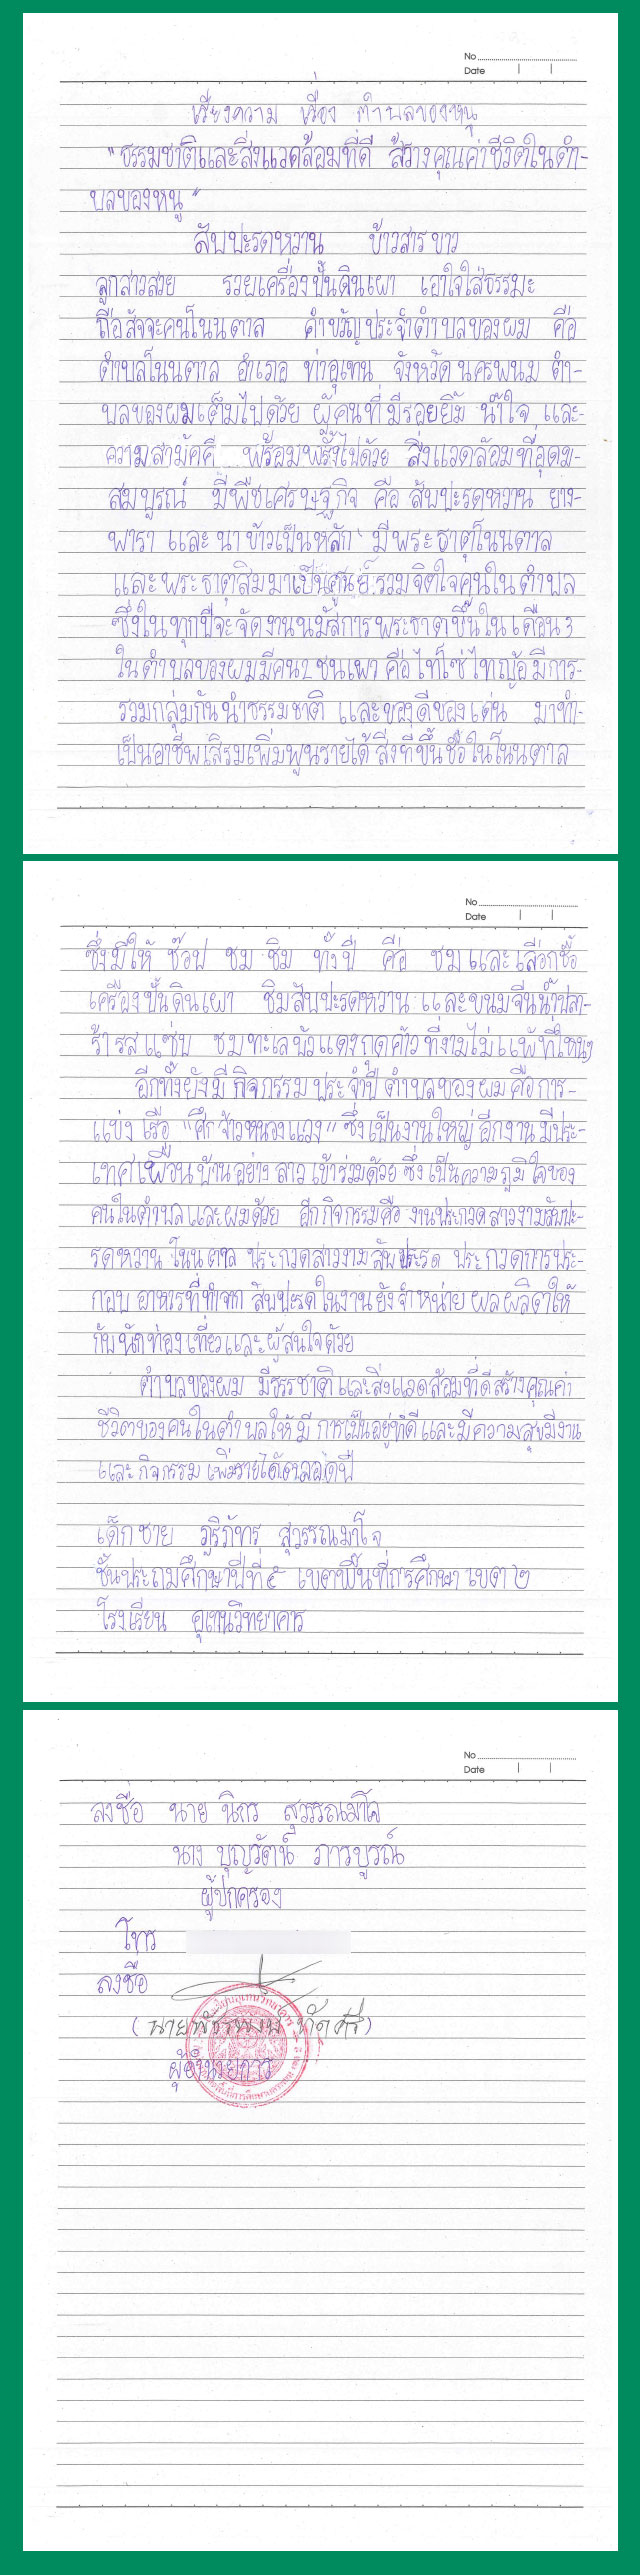 No
Date
เรียงความ เรื่อง ตำบลของหนู
"ธรรมชาติและสิ่งแวดล้อมที่ดี สร้างคุณค่าชีวิตในตำ-
บลของหนู"
สับปะรดหวาน ข้าวสารขาว
ลูกสาวสวย รวยเครื่องปั้นดินเผา เอาใจใส่ธรรมะ
ถือสัจจะคนโนนตาล คำขวัญประจำตำบลของผม คือ
ตำบลโนนตาล อำเภอ ท่าอุเทน จังหวัดนครพนม ตำ-
บลของผมเต็มไปด้วย ผู้คนที่มีรอยยิ้ม น้ำใจ และ-
ความสามัคคี พร้อมพรั่งไปด้วย สิ่งแวดล้อมที่อุดม-
สมบูรณ์ มีพืชเศรษฐกิจ คือ สับปะรดหวาน ยาง-
พารา และนาข้าวเป็นหลัก มีพระธาตุโนนตาล
และพระธาตุสิมมาเป็นศูนย์รวมจิตใจคนในตำบล
ซึ่งในทุกปีจะจัดงานนมัสการพระธาตุขึ้นในเดือน 3
ในตำบลของผมมีคน 2 ชนเผ่า คือไทโซ่ ไทญ้อ มีการ-
รวมกลุ่มกันนำธรรมชาติ และของดีของเด่น มาทำ-
เป็นอาชีพเสริมเพิ่มพูนรายได้ สิ่งที่ขึ้นชื่อในโนนตาล
No
Date
ซึ่งมีให้ ช๊อป ชม ชิม ทั้งปี คือ ชมและเลือกซื้อ
เครื่องปั้นดินเผา ชิมสับปะรดหวาน และขนมจีนน้ำปลา-
ร้ารสแซ่บ ชมทะเลบัวแดงกุดค้าว ที่งามไม่แพ้ที่ไหนๆ
อีกทั้งยังมีกิจกรรมประจำปี ตำบลของผมคือการ-
แข่งเรือ "ศึกจ้าวหนองแวง" ซึ่งเป็นงานใหญ่อีกงาน มีประ-
เทศเพื่อนบ้านอย่างลาวเข้าร่วมด้วย ซึ่งเป็นความภูมิใจของ
คนในตำบลและผมด้วย อีกกิจกรรมคือ งานประกวดสาวงามสับปะ-
รดหวานโนนตาล ประกวดสาวงามสับปะรด ประกวดการประ-
กอบอาหารที่ทำจากสับปะรดในงานยังจำหน่ายผลผลิตให้
กับนักท่องเที่ยวและผู้สนใจด้วย
ตำบลของผม มีธรรชาติและสิ่งแวดล้อมที่ดีสร้างคุณค่า
ชีวิตของคนในตำบลให้มีการเป็นอยู่ที่ดีและมีความสุขมีงาน
และกิจกรรมเพิ่มรายได้ตลอดปี
เด็กชาย ภูริภัทร สุวรรณมาโจ
ชั้นประถมศึกษาปีที่ ๕ เขตพื้นที่การศึกษา เขต ๒
โรงเรียน อุเทนวิทยาคาร
No
Date
ลงชื่อ นาย นิกร สุวรรณมาโจ
นาง บุญรัตน์ ภารบูรณ์
ผู้ปกครอง
โทร
ลงชื่อ
ผู้อำนวยการ